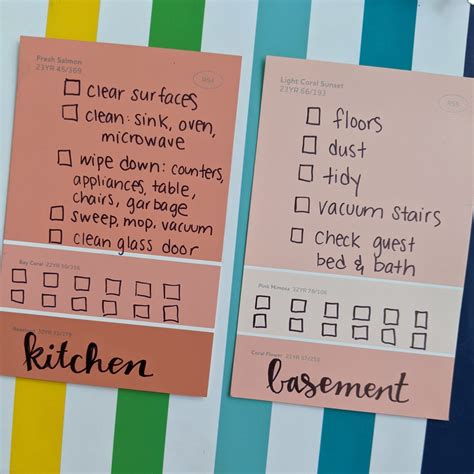 Fresh Salmon
23YR 45/369
☐ clear surfaces
☐ clean: sink, oven,
microwave
☐ wipe down: counters,
appliances, table,
chairs, garbage
☐ sweep, mop, vacuum
☐ clean glass door
Bay Coral
kitchen
Light Coral Sunset
23YR 66/193
☐ floors
☐ dust
☐ tidy
☐ vacuum stairs
☐ Check guest
bed & bath
Pink Mimosa
Coral Flower
basement